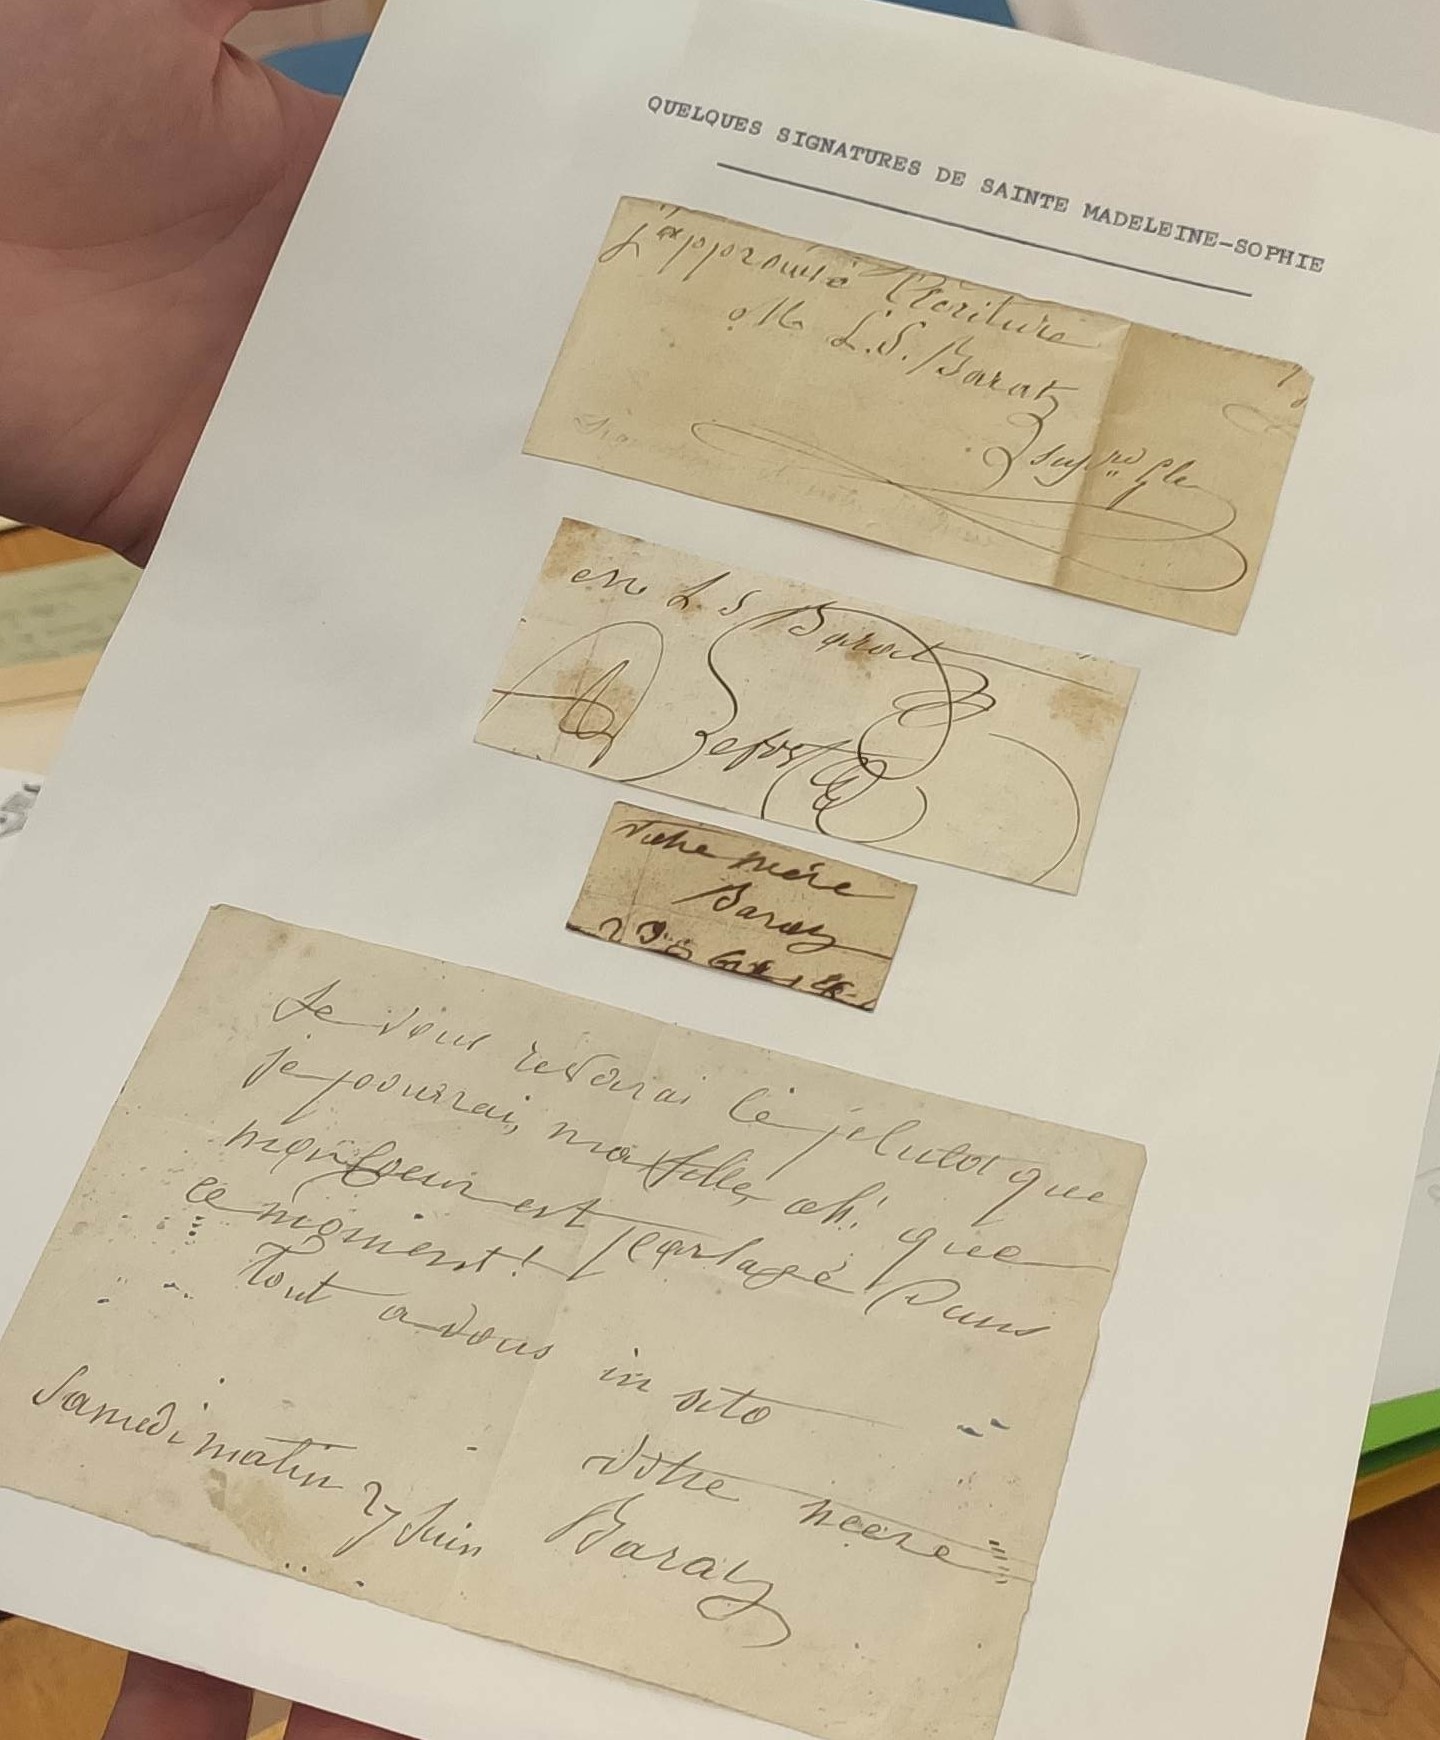 QUELQUES SIGNATURES DE SAINTE MADELEINE-SOPHIE
j'approuve l'écriture
M L.S. Barat
supre gle
L S Barat
votre mère
Barat
Je vous reverrai le plutot que
je pourrai, ma fille, oh! que
mon coeur est partagé dans
ce moment!
tout a vous in
votre meere
Barat
Samedi matin 27 Juin